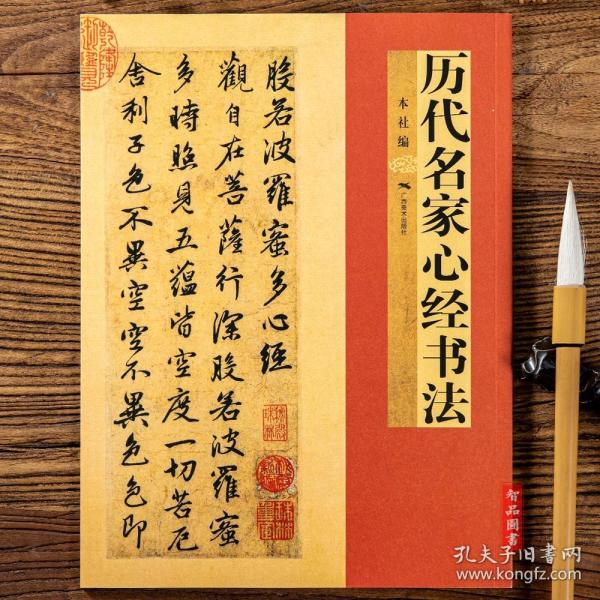 历代名家心经书法
本社编
广西美术出版社
般若波羅蜜多心經
觀自在菩薩行深般若波羅蜜
多時照見五蘊皆空度一切苦厄
舍利子色不異空空不異色色即
智品圖書
孔夫子旧书网
www.kongfz.com